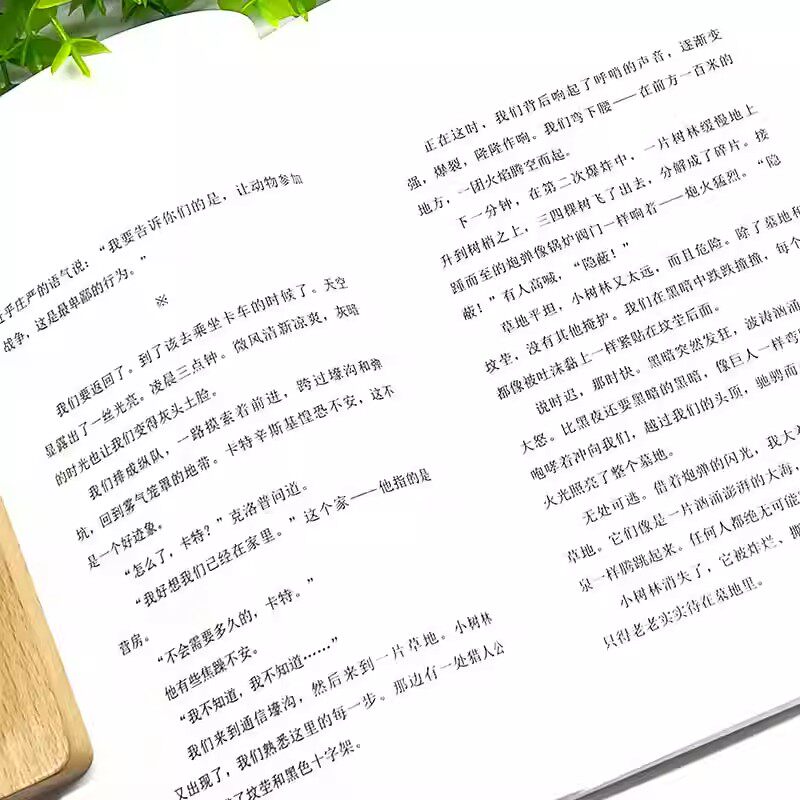 “我要告诉你们的是，让动物参加
乎庄严的语气说：
战争，这是最卑鄙的行为。”
※
我们要返回了。到了该去乘坐卡车的时候了。天空
显露出了一丝光亮。凌晨三点钟。微风清新凉爽，灰暗
的时光也让我们变得灰头土脸。
我们排成纵队，一路摸索着前进，跨过壕沟和弹
坑，回到雾气笼罩的地带。卡特辛斯基惶恐不安，这不
是一个好迹象。
“怎么了，卡特？”克洛普问道。
“我好想我们已经在家里。”这个家——他指的是
营房。
“不会需要多久的，卡特。”
他有些焦躁不安。
“我不知道，我不知道……”
我们来到通信壕沟，然后来到一片草地。小树林
又出现了，我们熟悉这里的每一步。那边有一处猎人公
了坟茔和黑色十字架。
正在这时，我们背后响起了呼哨的声音，逐渐变
强，爆裂，隆隆作响。我们弯下腰——在前方一百米的
地方，一团火焰腾空而起。
下一分钟，在第二次爆炸中，一片树林缓慢地上
升到树梢之上，三四棵树飞了出去，分解成了碎片。接
踵而至的炮弹像锅炉阀门一样响着——炮火猛烈。“隐
蔽！”有人高喊，“隐蔽！”
草地平坦，小树林又太远，而且危险。除了墓地和
坟茔，没有其他掩护。我们在黑暗中跌跌撞撞，每个
都像被吐沫黏上一样紧贴在坟茔后面。
说时迟，那时快。黑暗突然发狂，波涛汹涌
大怒。比黑夜还要黑暗的黑暗，像巨人一样弯
咆哮着冲向我们，越过我们的头顶，驰骋而
火光照亮了整个墓地。
无处可逃。借着炮弹的闪光，我大
草地。它们像是一片汹涌澎湃的大海，
泉一样腾跳起来。任何人都绝无可能
小树林消失了，它被炸烂、撕
只得老老实实待在墓地里。